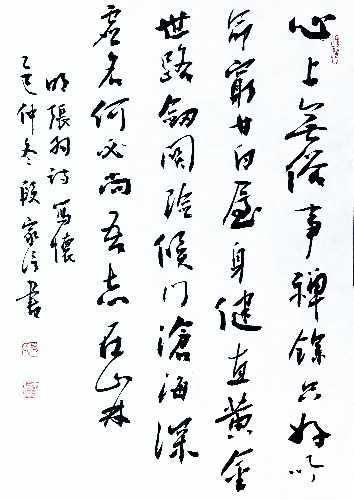 心上無俗事禪餘只好吟
命窮甘白屋身健直黃金
世路劍閣險候門滄海深
虛名何必尚吾志在山林
明張羽詩寫懷
乙巳仲冬段家信書